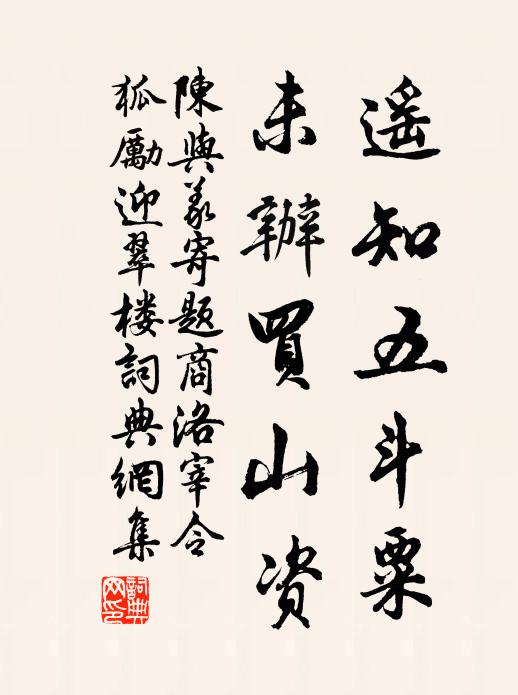 遥知五斗粟
未辦買山资
陳與義寄题商洛宰令
狐勵迎翠楼詞典網集
詞典网印